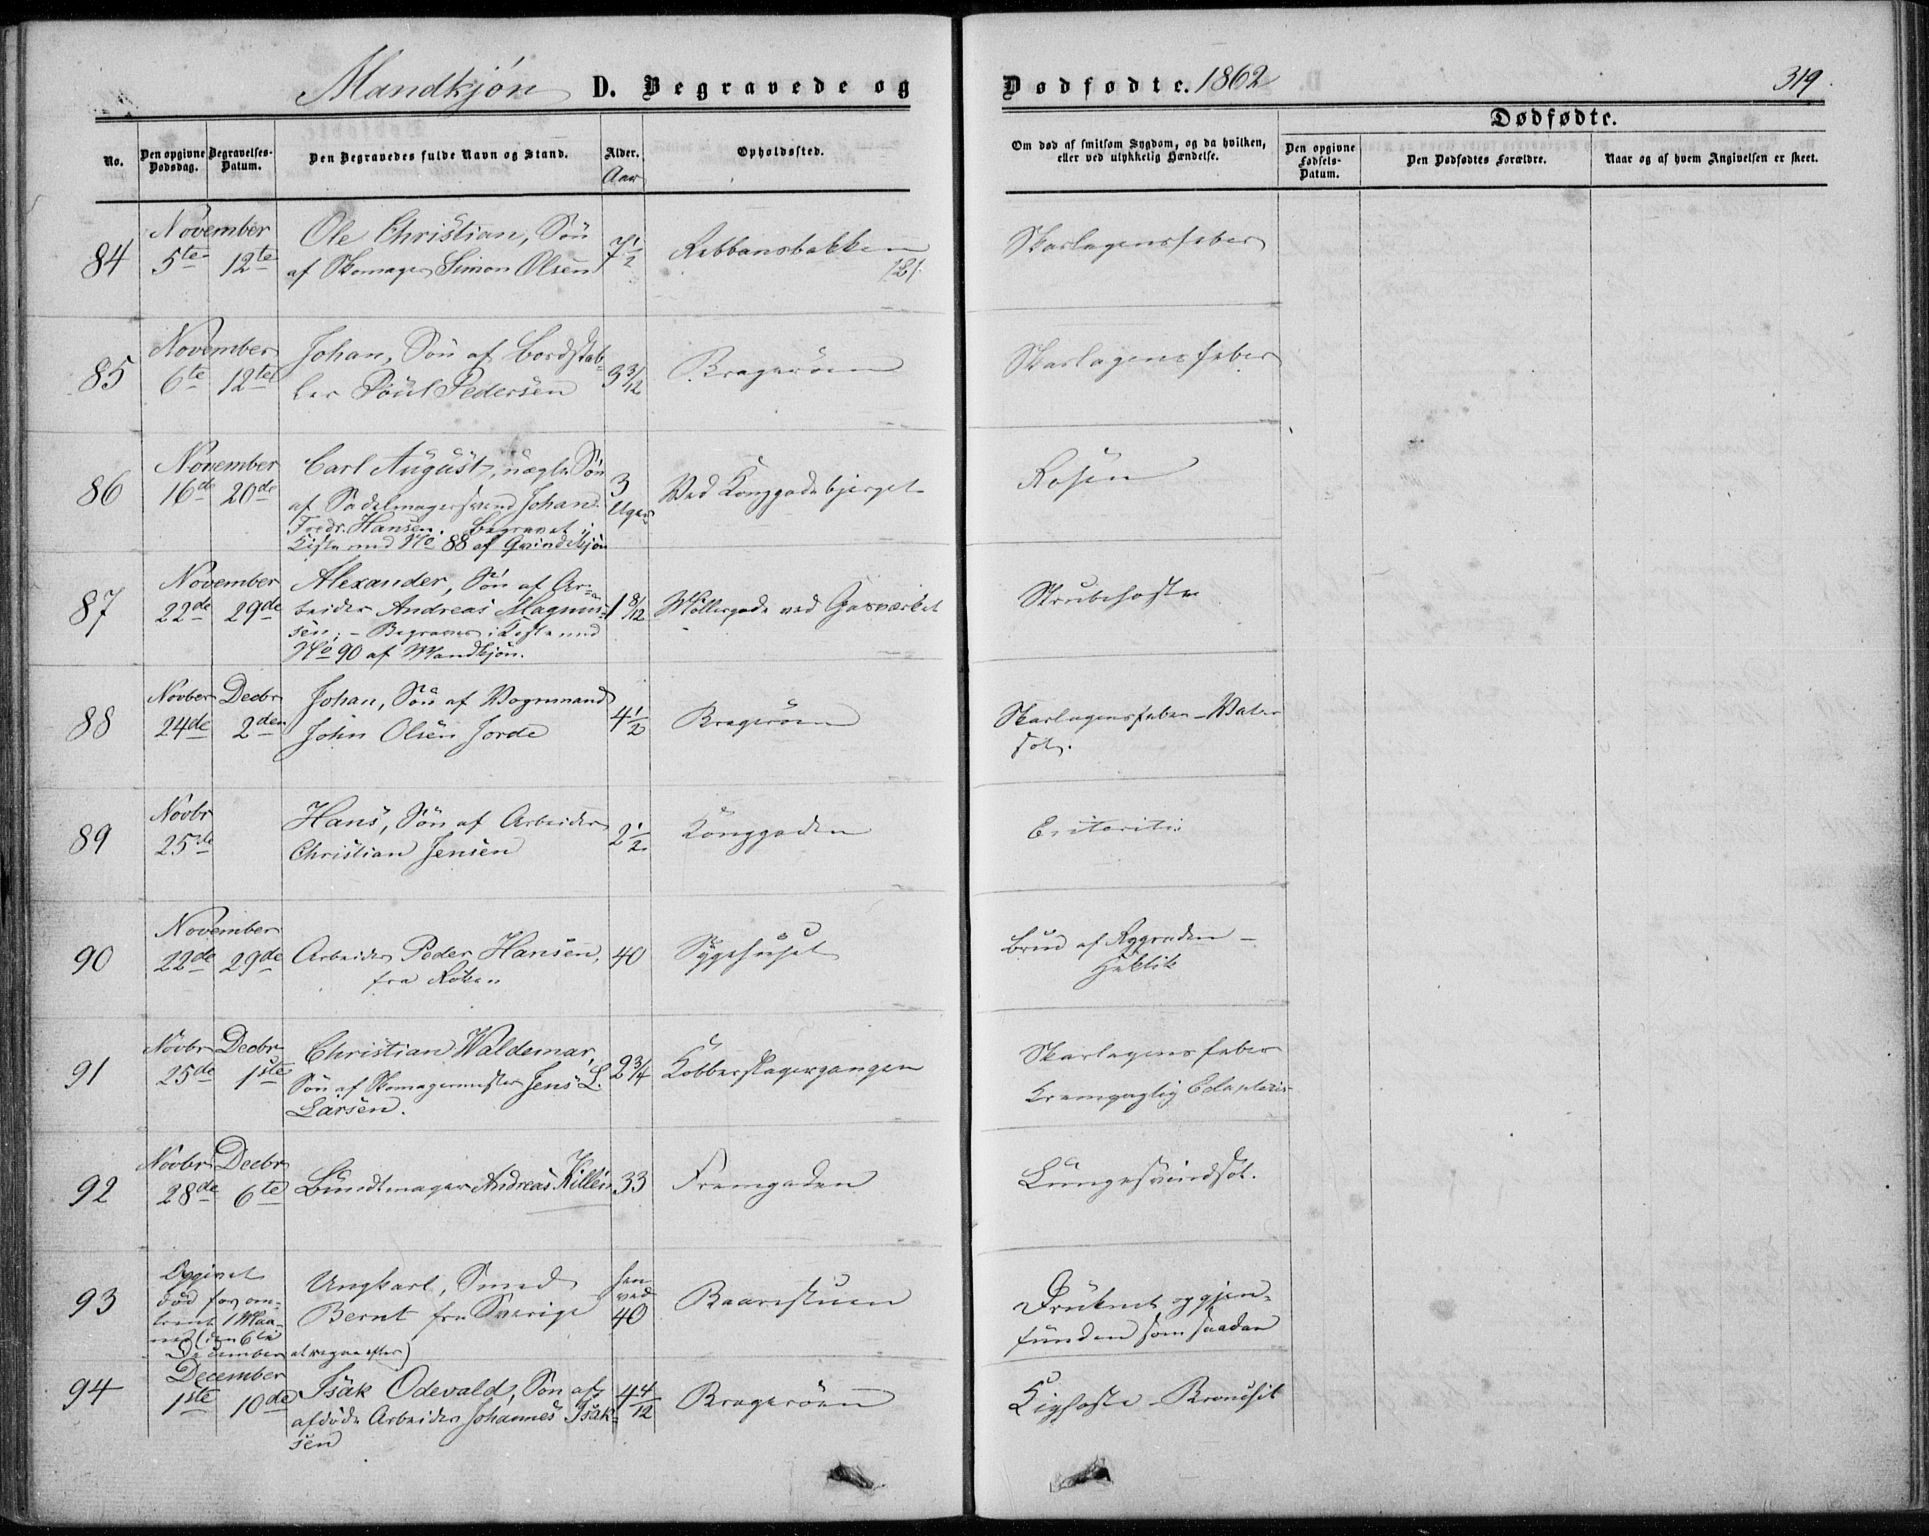 Mandkjøn D. Begravede og Dødfødte. 1862 319.
Dødfødte.
No.
Den opgivne Dødsdag.
Begravelses-Datum.
Den Begravedes fulde Navn og Stand.
Alder.
Aar
Opholdssted.
Om død af smitsom Sygdom, og da hvilken,
eller ved ulykkelig Hændelse.
Den opgivne Fødsels-Datum.
Den Dødfødtes Forældre.
Naar og af hvem Angivelsen er skeet.
November Ole Christian, Søn
84 5te 12te af Skomager Simon Olsen 7 1/2 Rebbansbakken Skarlagensfeber
121
November Johan, Søn af Bordstab-
85 6te 12te ler Poul Pedersen 3 3/12 Bragerøen Skarlagensfeber
November Carl August, uægte Søn
86 16de 20de af Sadelmagersvend Johan 3 Uger Ved Konggadebjerget Rosen
Fredr. Hansen. Begravet i
Kiste med No 88 af Qvindekjøn
November Alexander, Søn af Ar-
87 22de 29de beider Andreas Magnus- 1 8/12 Møllergade ved Gasværket Strubehoste
sen; - Begraves i Kiste med
No 90 af Mandkjøn.
Novber Decbr Johan, Søn af Vognmand
88 24de 2den John Olsen Jorde 4 1/2 Bragerøen Skarlagensfeber - Vater
sot.
Novbr Hans, Søn af Arbeider
89 25de Christian Jensen 2 1/2 Konggaden Enteritis
November
90 22de 29de Arbeider Peder Hansen, 40 Sygehuset Brud af Rygraden -
fra Røken Hektik
Novbr Decbr Christian Waldemar,
91 25de 1ste Søn af Skomagermester Jens L. 2 3/4 Kobberslagergangen Skarlagensfeber
Larsen. Krampagtig
Novbr Decbr
92 28de 6te Bundtmager Andreas Killen 33 Fremgaden Lungesvindsot.
Opgivet
død for om-
trent 1 Maa-
ned (den 6te
December at regne efter)
93 Ungkarl, Smed hen ved
Bernt fra Sverige 40 Baarestuen Druknet og gjen-
funden som saadan
December Isak Odevald, Søn af
94 1ste 10de afdøde Arbeider Johannes Isak- 4 4/12 Bragerøen Kighoste - Bronchit
sen